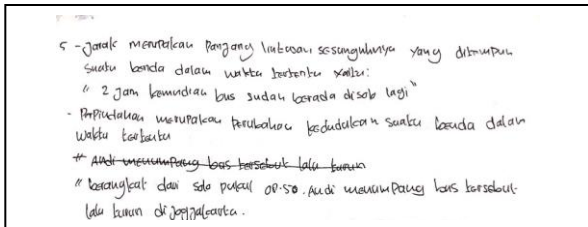 5 - Jarak merupakan panjang lintasan sesungguhnya yang ditempuh
suatu benda dalam waktu tertentu yaitu:
" 2 jam kemudian bus sudah berada di solo lagi"
- Perpindahan merupakan perubahan kedudukan suatu benda dalam
waktu tertentu
* Andi menumpang bus tersebut lalu turun
" berangkat dari solo pukul 08.50. Andi menumpang bus tersebut
lalu turun di jogjakarta.